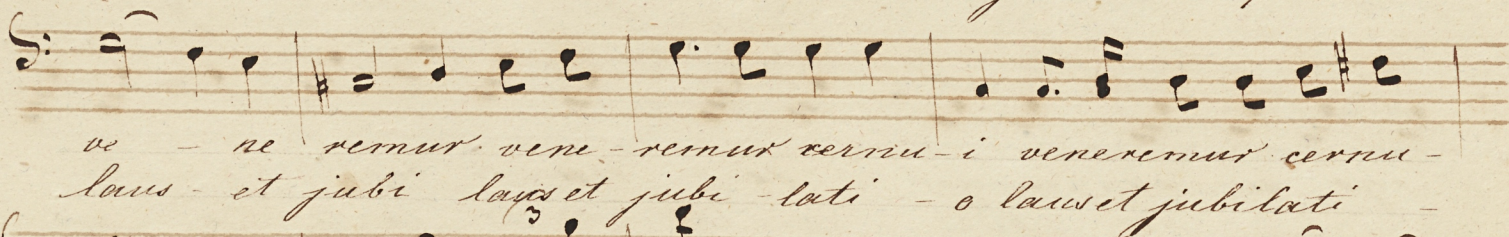 ve - ne remur vene - remur cernu - i veneremur cernu -
laus - et jubi laus et jubi - lati - o laus et jubilati -
3